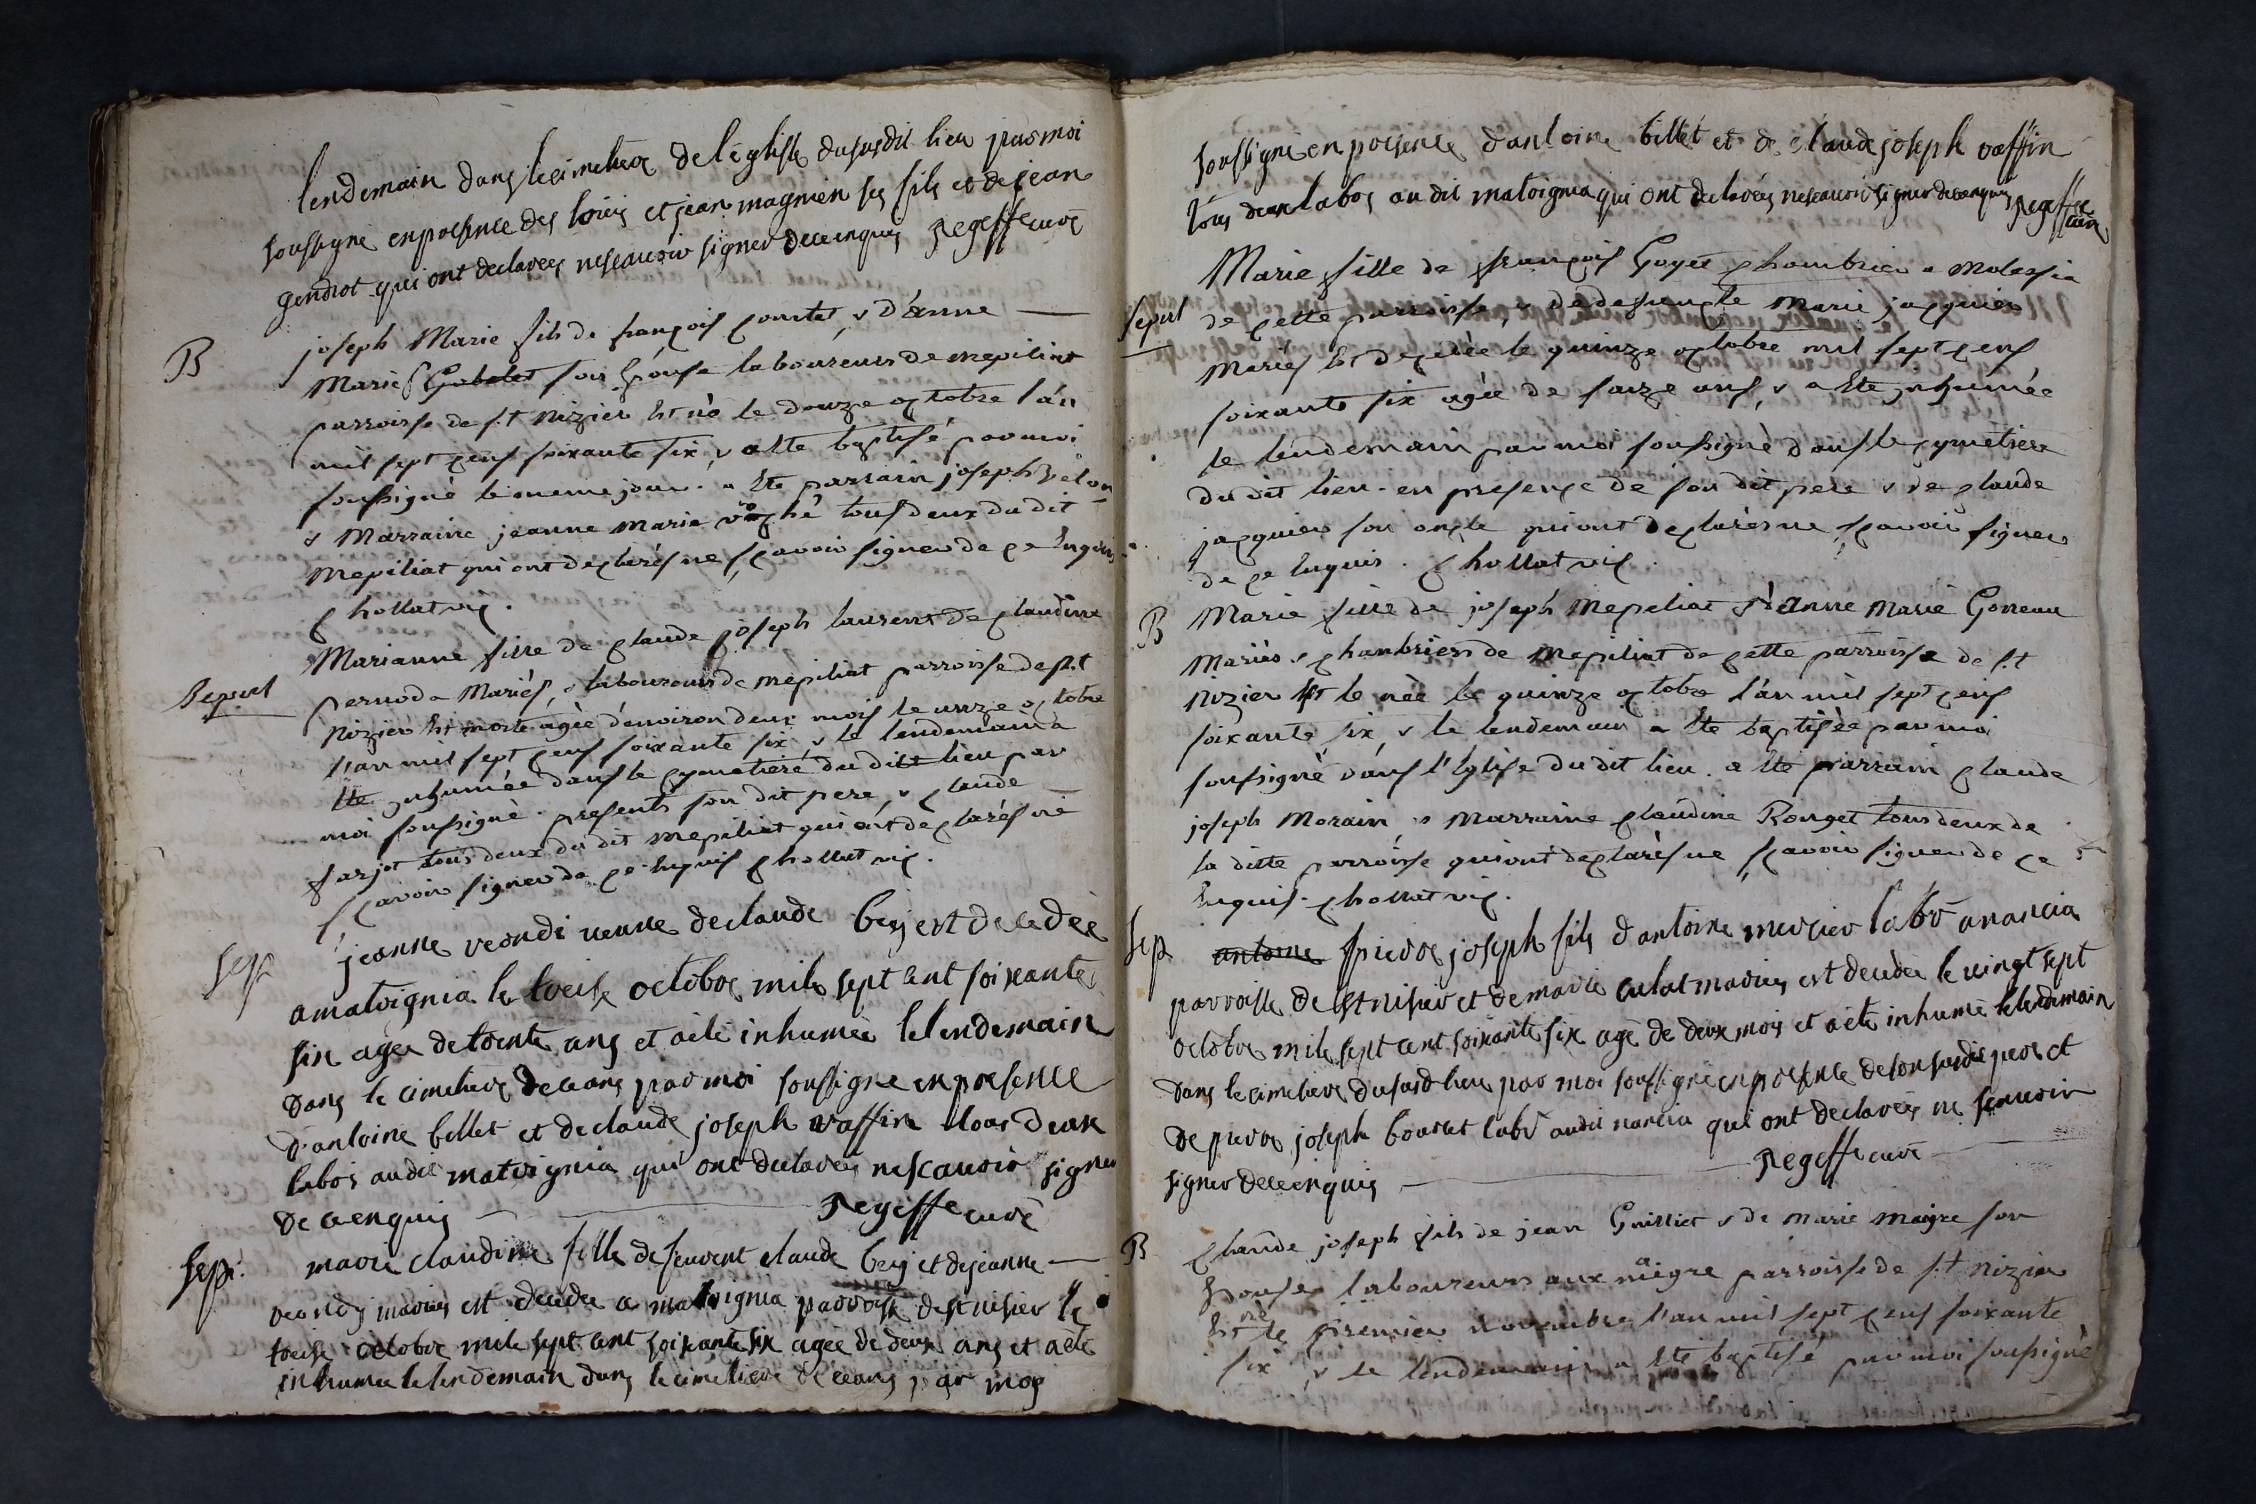 lendemain dans le cimetiere de l'eglise du susdit lieu par moi
soussigné en presence des loüis et jean magnien ses fils et de jean
gendrot qui ont declarees ne scauoir signer de ce enquis Regeffe curé
B joseph Marie fils de françois Comtet & d'anne
Mariés Gobelet son Épouse laboureurs de mepiliat
parroisse de s.t nizier Est né le douze octobre l'an
mil sept cens soixante six, & a Ete baptisé par moi
soussigné le meme jour. a Ete parrain joseph Velon
& Marraine jeanne marie vaché tous deux du dit
mepiliat qui ont declarés ne sçavoir signer de ce Enquis
Chollat vic.
Sepul Marianne fille de claude joseph laurent de claudine
pernoda Mariés, & laboureurs de mépiliat parroisse de s.t
Nizier Est morte agée d'environ deux mois le unze octobre
l'an mil sept cens soixante six, & le lendemain a
Ete inhumée dans le cymetiere du dit lieu par
moi soussigné. presents son dit pere, & claude
farjot tous deux du dit mepiliat qui ont declarés ne
sçavoir signer de ce Enquis Chollat vic.
sep jeanne veondi veuve de claude bej est decedée
a matoignia le treise octobre mile sept cent soixante
six agée de trente ans et a eté inhumée le lendemain
dans le cimetiere de ceans par moi soussigné en presence
d'antoine billet et de claude joseph vaffin tous deux
labos audit matoignia qui ont declarés ne scauoir signer
de ce enquis Regeffe curé
sep. marie claudine fille de feu vent claude bej et de jeanne
veondj mariés est decedée a matoignia parroisse de st nisier le
treise octobre mile sept cent soixante six agée de deux ans et a eté
inhumée le lendemain dans le cimetiere de ceans par moy
soussigné en presence d'antoine billet et de claude joseph vaffin
tous deux labos audit matoignia qui ont declarés ne scauoir signer de ce enquis Regeffe curé
Sepul Marie fille de françois Goyet chambrier a Molessia
de cette parroisse, & de defuncte Marie jacquier
Mariés Est decedée le quinze octobre mil sept cens
soixante six agée de saize ans, & a Ete inhumée
le lendemain par moi soussigné dans le cymetiere
du dit lieu en presence de son dit pere & de claude
jacquier son oncle qui ont declarés ne sçavoir signer
de ce Enquis. Chollat vic.
B Marie fille de joseph Mepeliat & d'anne marie Goneau
Mariés & chambriers de mepiliat de cette parroisse de s.t
nizier Est le née le quinze octobre l'an mil sept cens
soixante six, & le lendemain a Ete baptisée par moi
soussigné dans l'Eglise du dit lieu. a Ete parrain claude
joseph Morain, & marraine claudine Ronget tous deux de
la ditte parroisse qui ont declarés ne sçavoir signer de ce
Enquis. Chollat vic.
sep antoine pierre joseph fils d'antoine mercier labr a nancia
parroisse de st nisier et de marie culat mariés est decedée le vingt sept
octobre mile sept cent soixante six agé de deux mois et a eté inhumé le lendemain
dans le cimetiere du susd lieu par moi soussigné en presence de son susdit pere et
de pierre joseph bouvet labr audit nancia qui ont declarées ne scauoir
signer de ce enquis Regeffe curé
B Claude joseph fils de jean Guilliet & de marie maigre son
Épouse laboureurs aux maigre parroisse de s.t nizier
Est né le premier novembre l'an mil sept cens soixante
six, & le lendemain a Ete baptisé par moi soussigné